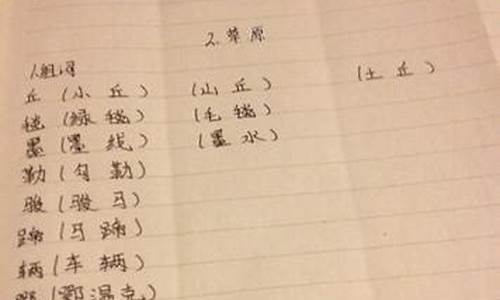 2.草原
1.组词
丘(小丘) (山丘) (土丘)
毯(绿毯) (毛毯)
墨(墨线) (墨水)
勒(勾勒)
骏(骏马)
蹄(马蹄)
辆(车辆)
鄂(鄂温克)